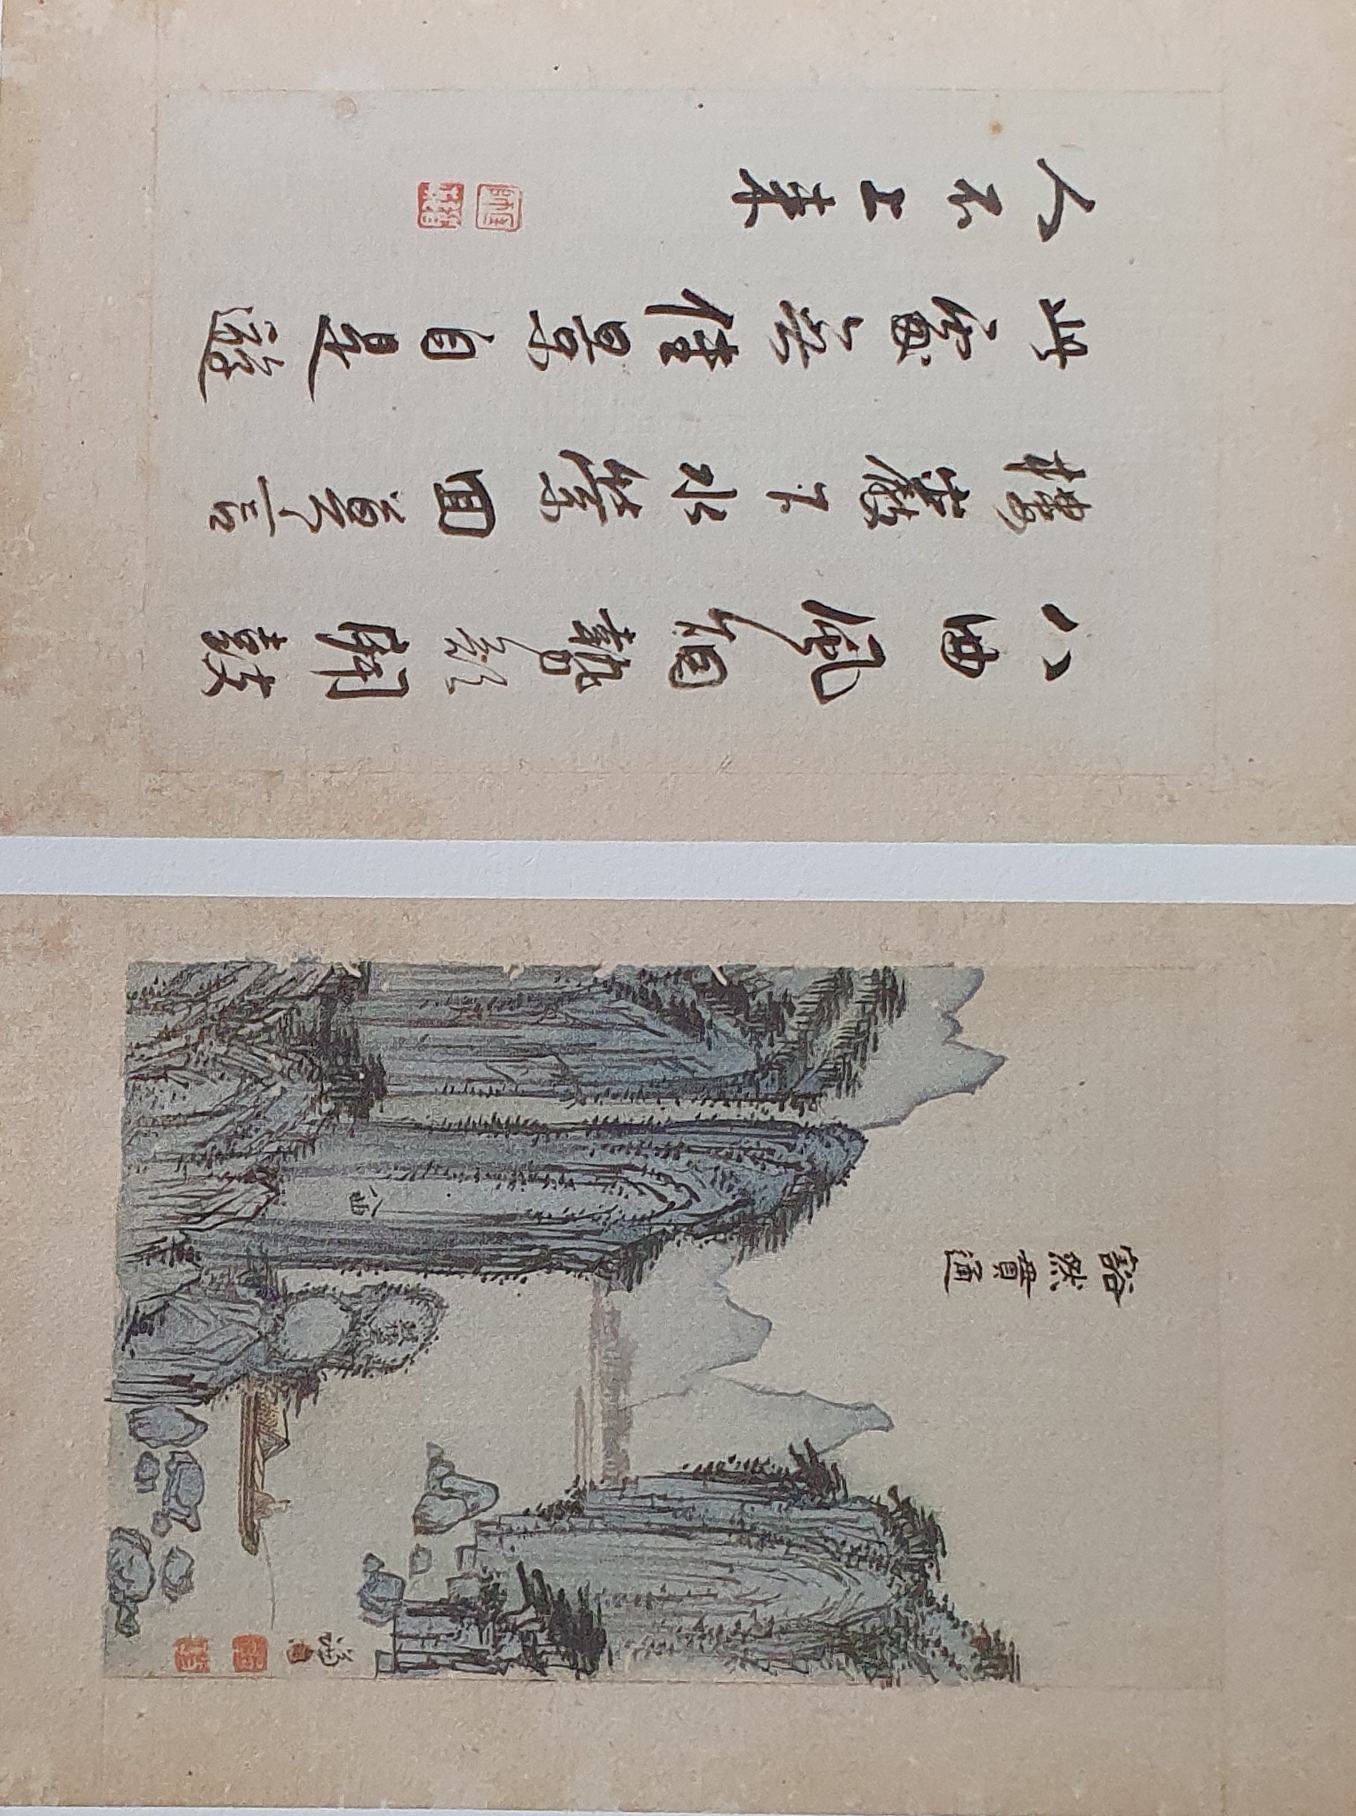 八曲風烟勢欲開鼓
樓巖下水縈回莫言
此處無佳景自是遊
人不上來
豁然貫通
八曲
鼓樓